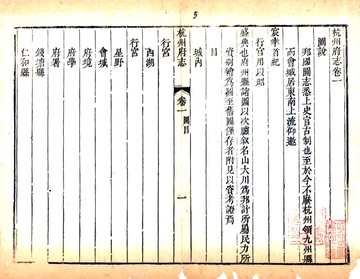 5
杭州府志卷一
圖說
邦國圖志悉上史官古制也至於今不廢杭州領九州縣
而會城居東南上流仰邀
宸幸首紀
行宫用以昭
盛典也府州縣諸圖以次臚叙名山大川爲邦計所關民力所
資別繪爲圖至舊圖僅存者附見以資考證焉
目
城内
杭州府志
卷一 圖目
一
行宫
西湖
行宫
星野
會城
府境
府學
府署
錢塘縣
仁和縣